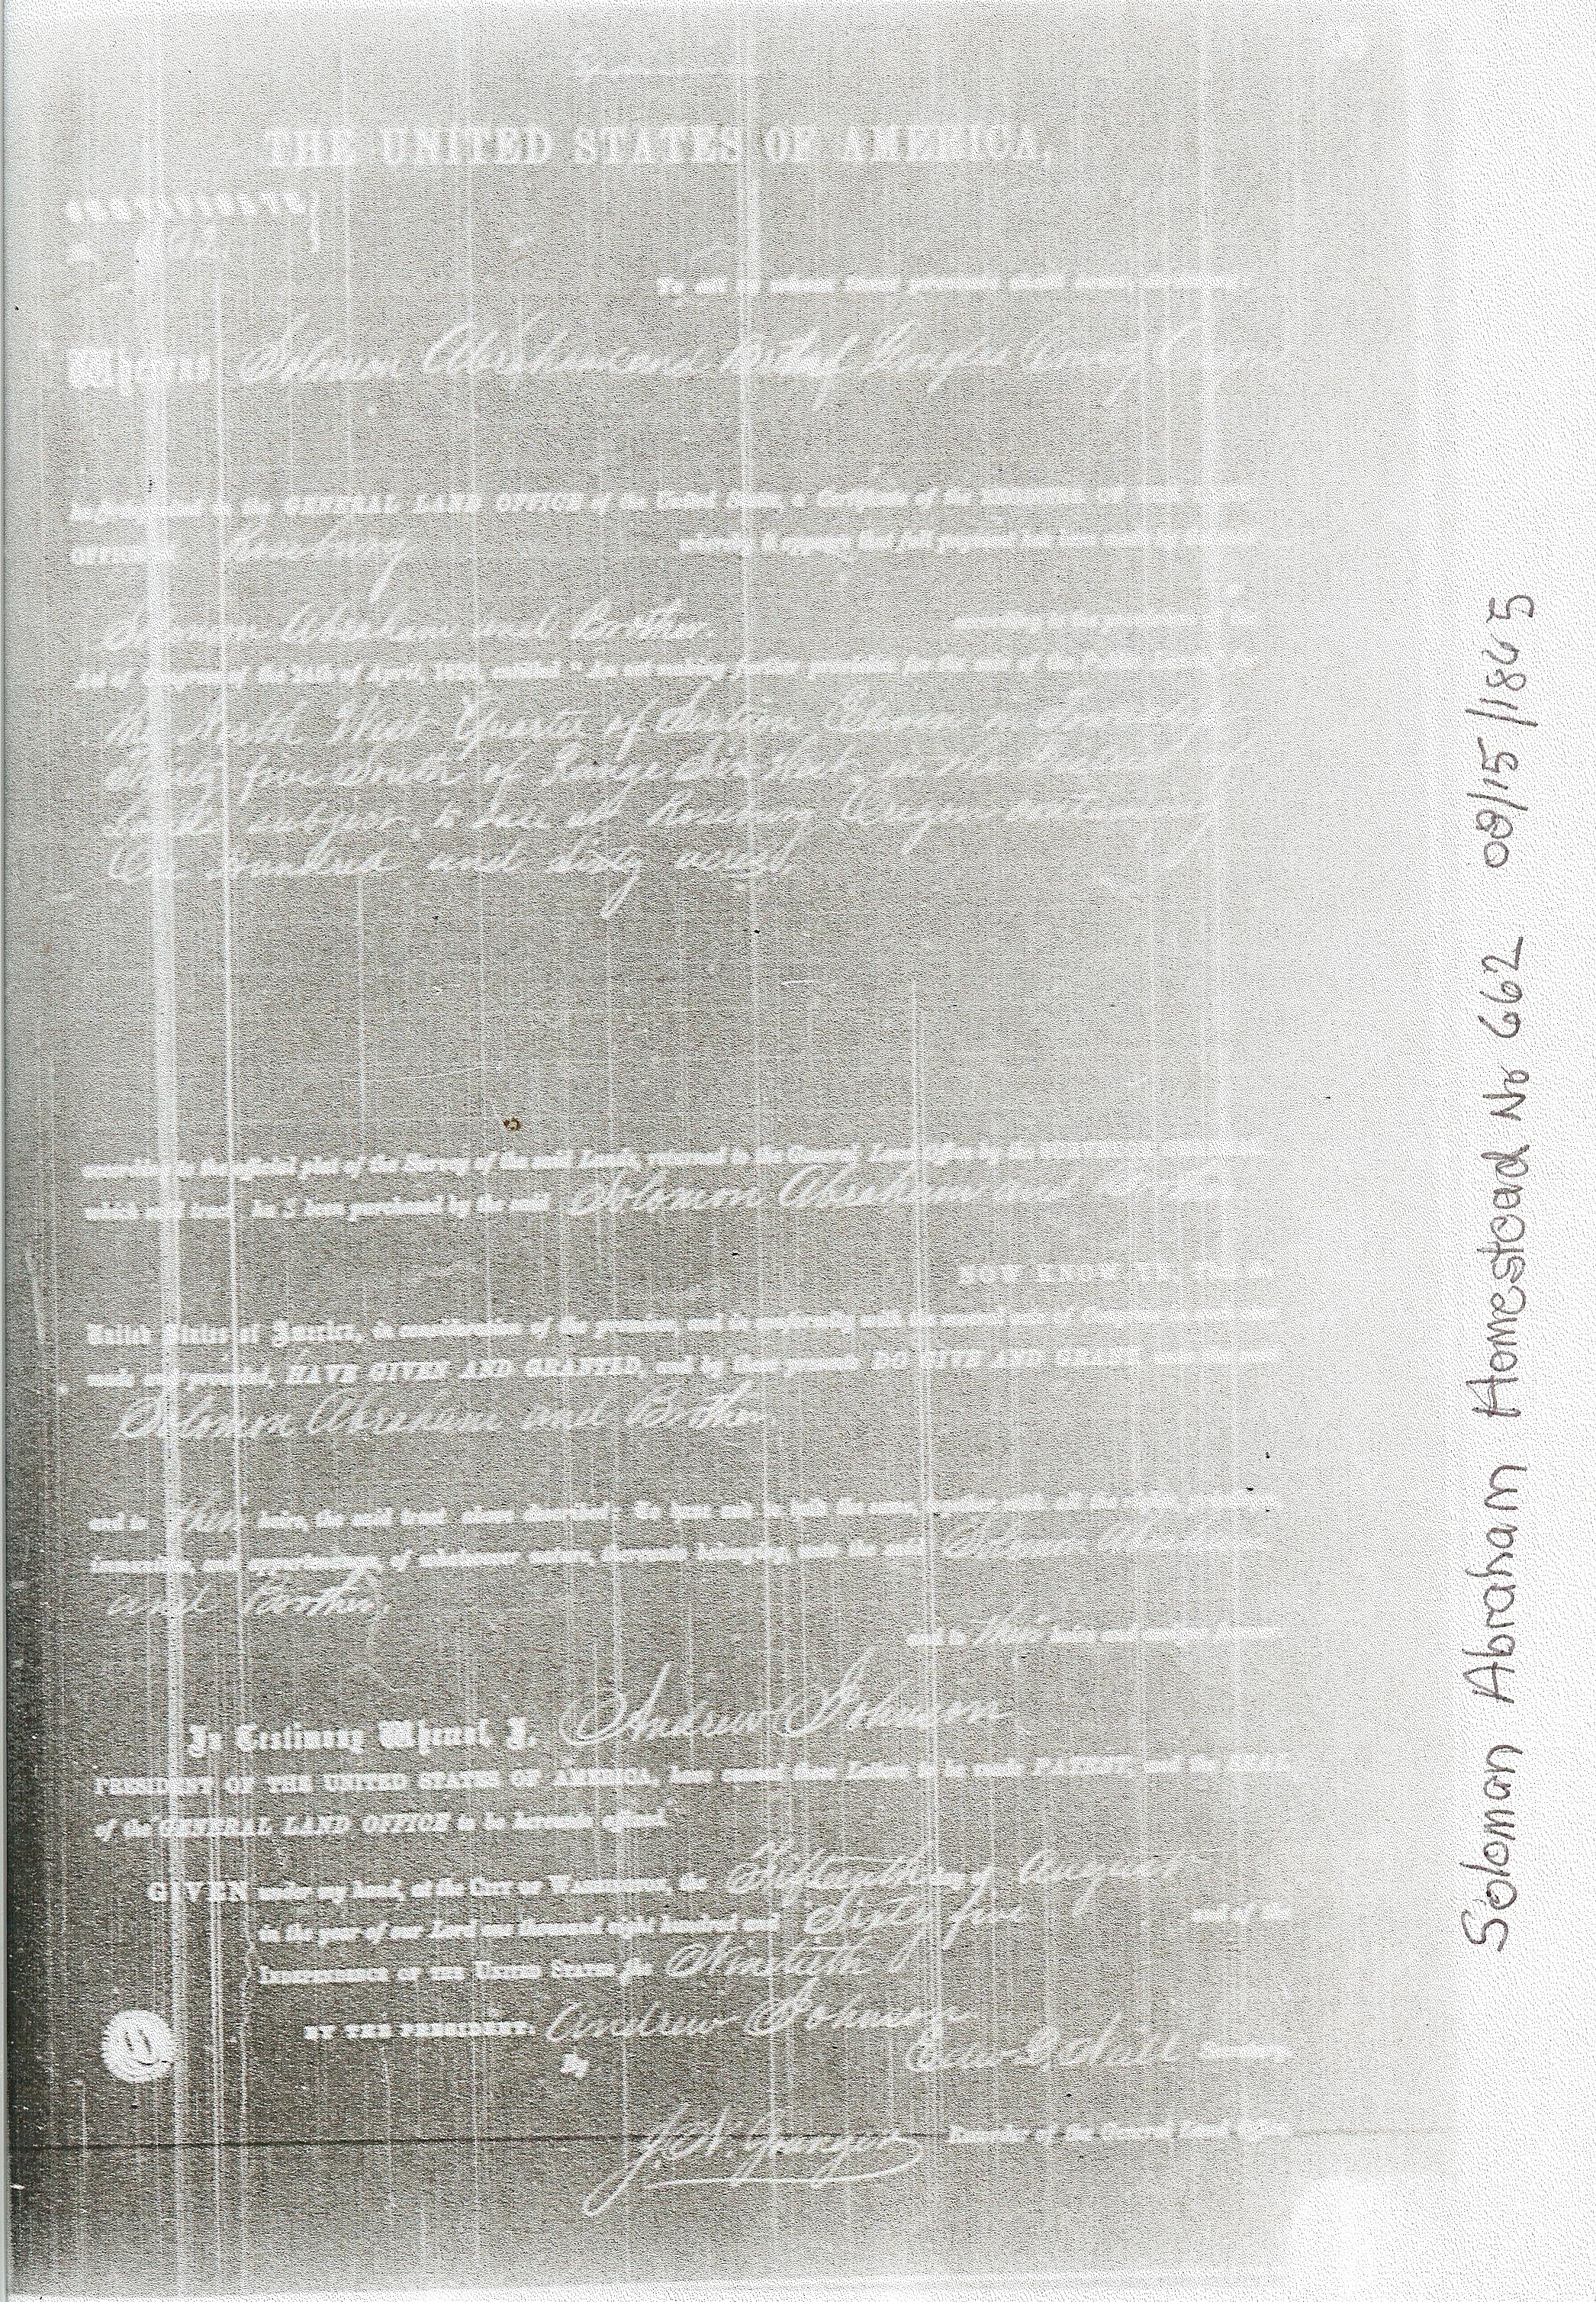 THE UNITED STATES OF AMERICA,
CERTIFICATE
To all to whom these presents shall come,
Whereas Solomon Abraham and Brother Douglas County
deposited in the GENERAL LAND OFFICE of the United States, a Certificate of the REGISTER OF THE LAND
OFFICE at Roseburg whereby it appears that full payment has been made by the said
Solomon Abraham and Brother. according to the provisions of the
Act of Congress of the 24th of April, 1820, entitled "An act making further provision for the sale of the Public Lands," for
the North West Quarter of Section Eleven in Township
thirty five South of Range Six West, in the District of
Lands subject to sale at Roseburg Oregon containing
One hundred and sixty acres
according to the official plat of the Survey of the said Lands, returned to the General Land Office by the
which said tract has been purchased by the said Solomon Abraham and Brother
NOW KNOW YE, That the
United States of America, in consideration of the premises, and in conformity with the several acts of Congress in such case
made and provided, HAVE GIVEN AND GRANTED, and by these presents DO GIVE AND GRANT,
Solomon Abraham and Brother
and to their heirs, the said tract above described: To have and to hold the same, together with all the rights, privileges,
immunities, and appurtenances, of whatsoever nature, thereunto belonging, unto the said Solomon Abraham
and Brother.
and to their heirs and assigns forever.
In Testimony Whereof, I, Andrew Johnson
PRESIDENT OF THE UNITED STATES OF AMERICA, have caused these Letters to be made PATENT, and the SEAL
of the GENERAL LAND OFFICE to be hereunto affixed.
GIVEN under my hand, at the CITY OF WASHINGTON, the Fifteenth day of August
in the year of our Lord one thousand eight hundred and Sixty five and of the
INDEPENDENCE OF THE UNITED STATES the Ninetieth
BY THE PRESIDENT: Andrew Johnson
By Edw. D. Neill Secretary
J. N. Granger Recorder of the General Land Office
Soloman Abraham Homestead No 662 08/15/1865